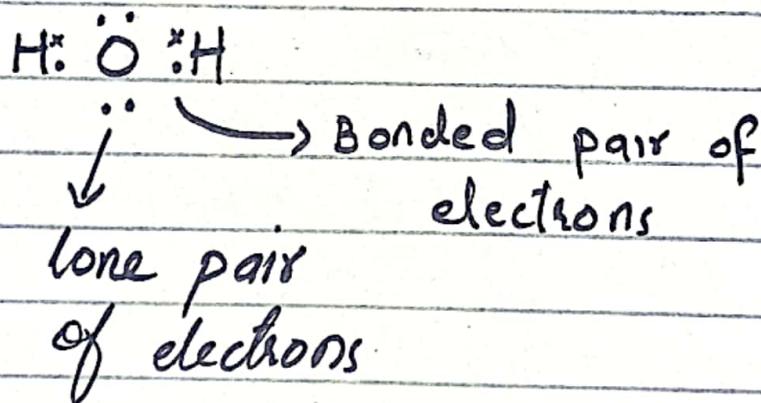 H ẋ. Ö ẋ. H
..
Bonded pair of
electrons
lone pair
of electrons